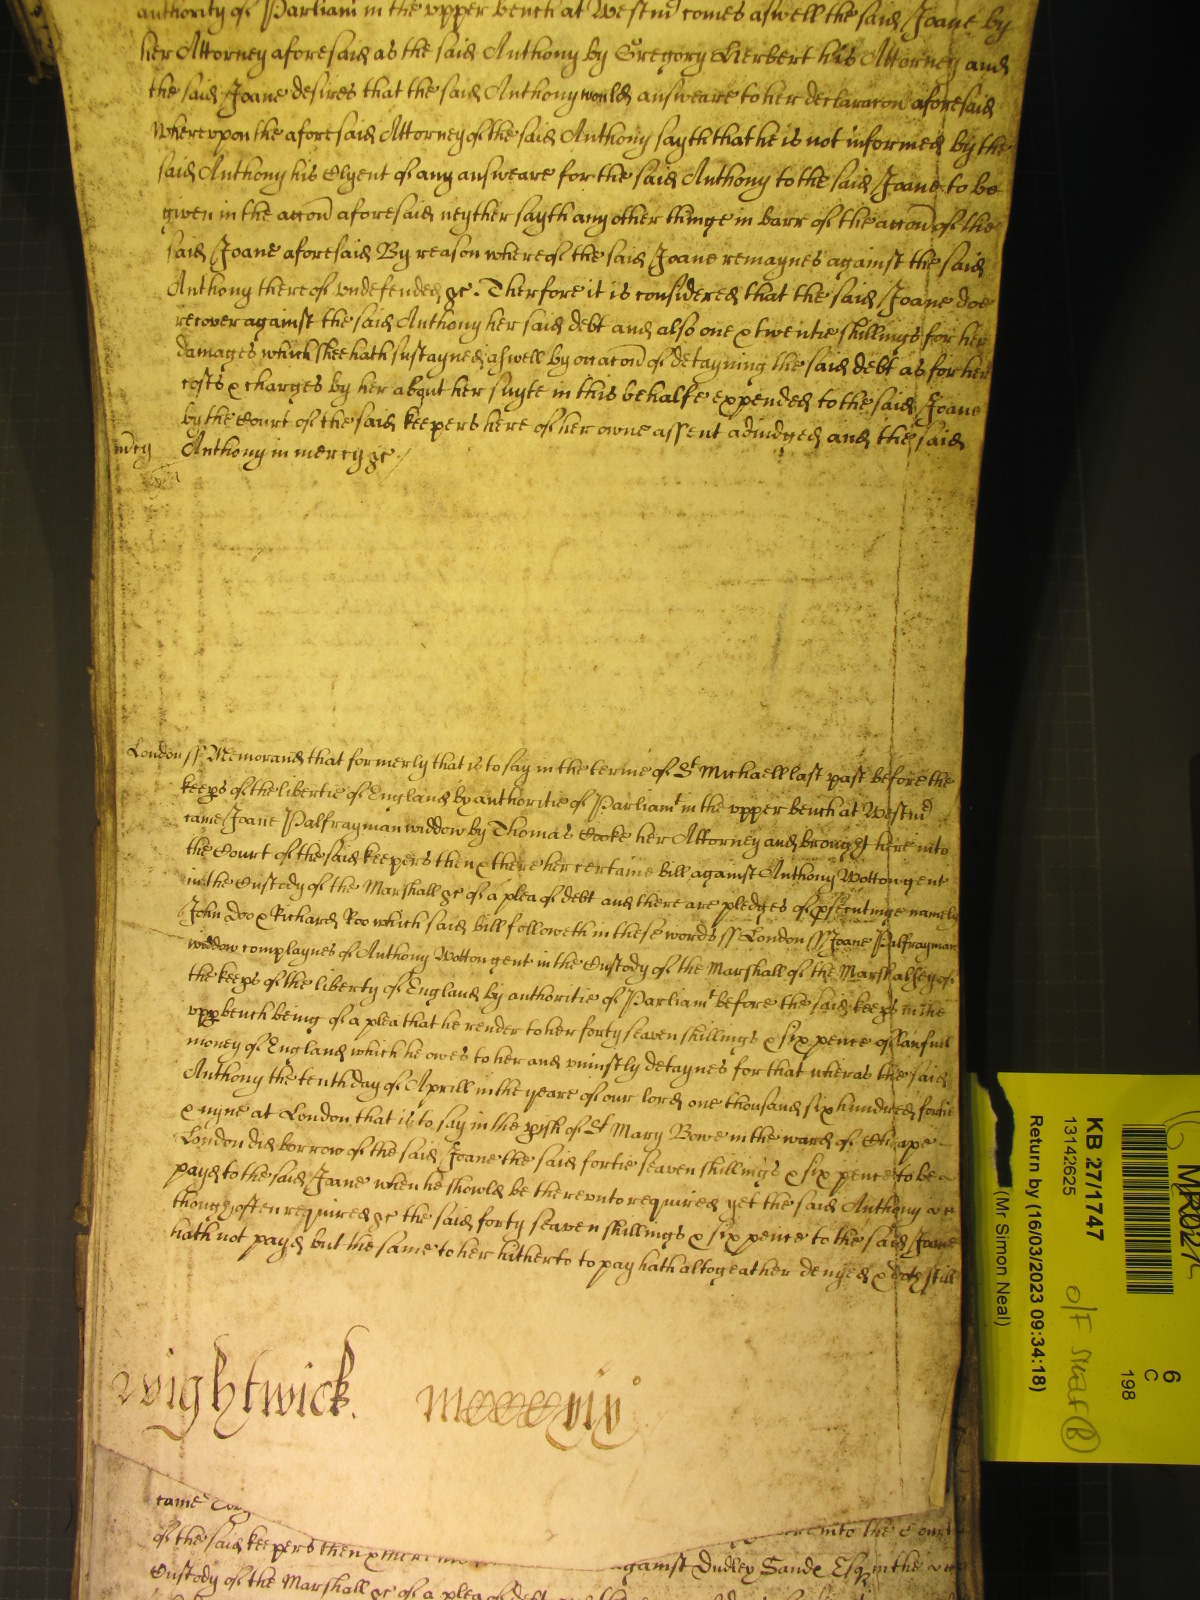 authority of Parliam in the upper bench at Westm comes aswell the said Joane by
her Attorney aforesaid as the said Anthony by Gregory Herbert his Attorney and
the said Joane desires that the said Anthony would answeare to her declaracon aforesaid
Whereupon the aforesaid Attorney of the said Anthony sayth that he is not informed by the
said Anthony his Clyent of any answeare for the said Anthony to the said Joane to be
given in the accon aforesaid neyther sayth any other thinge in barr of the accon of the
said Joane aforesaid By reason whereof the said Joane remaynes against the said
Anthony thereof undefended &c. Therfore it is considered that the said Joane doe
recover against the said Anthony her said debt and also one & twentie shillings for her
damages which shee hath sustayned aswell by occacon of detayning the said debt as for her
costs & charges by her about her suyte in this behalfe expended to the said Joane
by the Court of the said keepers here of her owne assent adiudged and the said
mcy Anthony in mercy &c
London ss Memorand that formerly that is to say in the terme of St Michaell last past before the
keeps of the libertie of England by authoritie of Parliamt in the upper bench at Westm
came Joane Palfrayman widdow by Thomas Cooke her Attorney and brought here into
the Court of the said keepers then & there her certaine bill against Anthony Wotton gent
in the Custody of the Marshall &c of a plea of debt and there are pledges of psecutinge namely
John Doo & Richard Roo which said bill followeth in these words ss London ss Joane Palfrayman
widdow complaynes of Anthony Wotton gent in the Custody of the Marshall of the Marshalsey of
the keeps of the liberty of England by authoritie of Parliamt before the said keeps in the
upp bench being of a plea that he render to her forty seaven shillings & six pence of lawfull
money of England which he owes to her and uniustly detaynes for that wheras the said
Anthony the tenth day of Aprill in the yeare of our lord one thousand six hundred fortie
& nyne at London that is to say in the pish of St Mary Bowe in the ward of Cheape
London did borrow of the said Joane the said fortie seaven shillings & six pence to be
payd to the said Joane when he should be thereunto required yet the said Anthony
though often required &c the said forty seaven shillings & six pence to the said Joane
hath not payd but the same to her hitherto to pay hath altogeather denyed & doth still
Wightwick.
came
into the Court
of the said keepers then & there
against Dudley Sand Esq in the
Custody of the Marshall &c of a plea of debt and
KB 27/1747
13142625
Return by (16/03/2023 09:34:18)
(Mr Simon Neal)
6
C
198
O/F